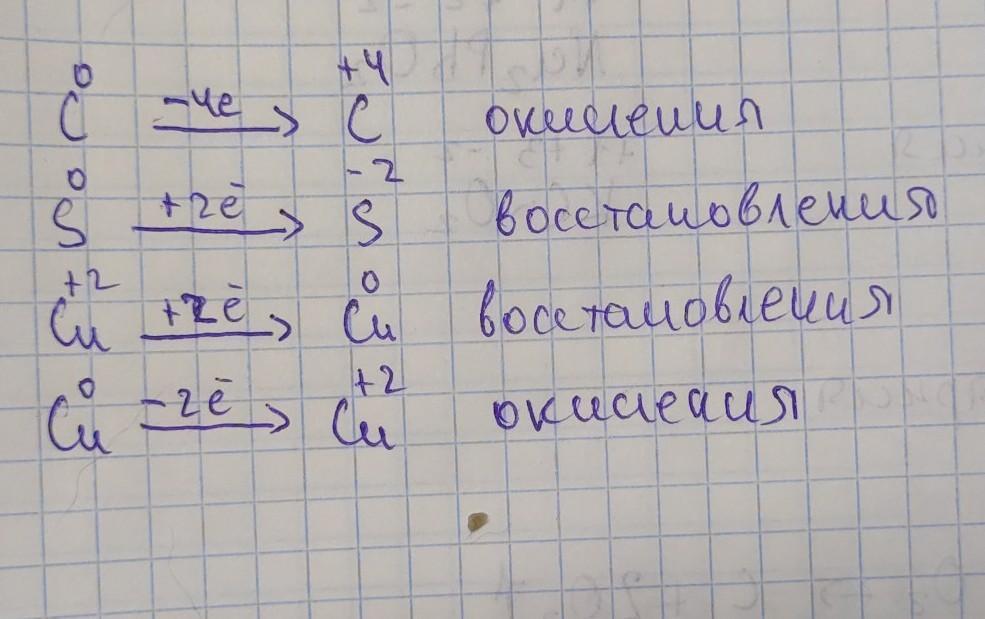 0 +4
C -4e → C окисления
0 -2
S +2ē → S восстановления
+2 0
Cu +2ē → Cu восстановления
0 +2
Cu -2ē → Cu окисления